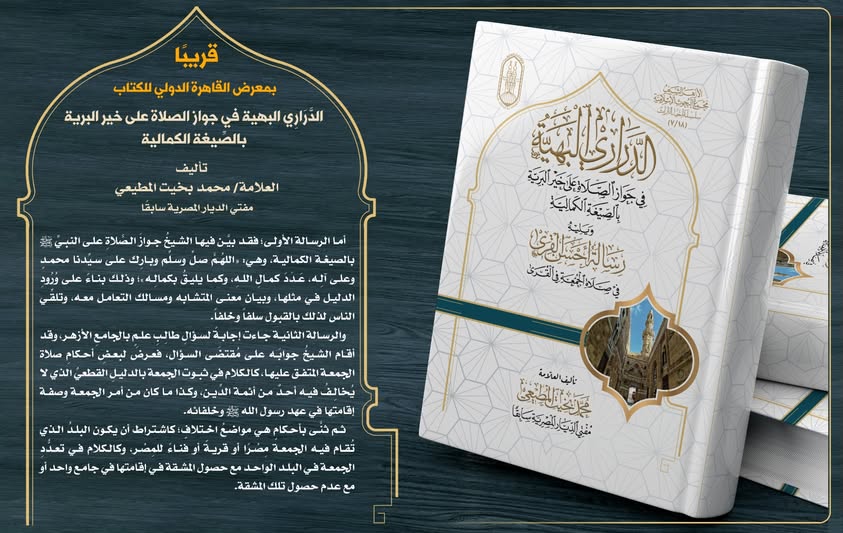 قريبًا
بمعرض القاهرة الدولي للكتاب
الدَّرَارِي البهية في جواز الصلاة على خير البرية
بالصيغة الكمالية
تأليف
العلامة/ محمد بخيت المطيعي
مفتي الديار المصرية سابقًا
أما الرسالة الأولى؛ فقد بيَّن فيها الشيخُ جوازَ الصَّلاةِ على النبيِّ ﷺ
بالصيغة الكمالية. وهي: «اللهُمَّ صلِّ وسلِّم وبارِك على سيِّدنا محمد
وعلى آله، عَدَدَ كمالِ الله، وكما يليقُ بكماله»؛ وذلك بناءً على وُرُودِ
الدليل في مثلها، وبيان معنى المتشابه ومسالك التعامل معه، وتلقِّي
الناس لذلك بالقبول سلفًا وخلفًا.
والرسالة الثانية جاءت إجابةً لسؤال طالبِ علمٍ بالجامع الأزهر، وقد
أقام الشيخُ جوابَه على مُقتضَى السؤال، فعرضَ لبعضِ أحكام صلاة
الجمعة المتفق عليها، كالكلام في ثبوت الجمعة بالدليل القطعيِّ الذي لا
يُخالفُ فيه أحدٌ من أئمة الدِّين، وكذا ما كان من أمر الجمعة وصفة
إقامتها في عهد رسول الله ﷺ وخلفائه.
ثم ثنَّى بأحكامٍ هي مواضعُ اختلافٍ؛ كاشتراط أن يكون البلدُ الذي
تُقام فيه الجمعةُ مصرًا أو قريةً أو فناءً للمصر، وكالكلام في تعدُّد
الجمعة في البلد الواحد مع حصول المشقة في إقامتها في جامع واحد أو
مع عدم حصول تلك المشقة.
الأزهر الشريف
مجمع البحوث الإسلامية
(٧/١٨)
الدراري البهية
في جواز الصلاة على خير البرية
بالصيغة الكمالية
ويليه
رسالة أحسن القرى
في صلاة الجمعة في القرى
تأليف العلامة
محمد بخيت المطيعي
مفتي الديار المصرية سابقًا